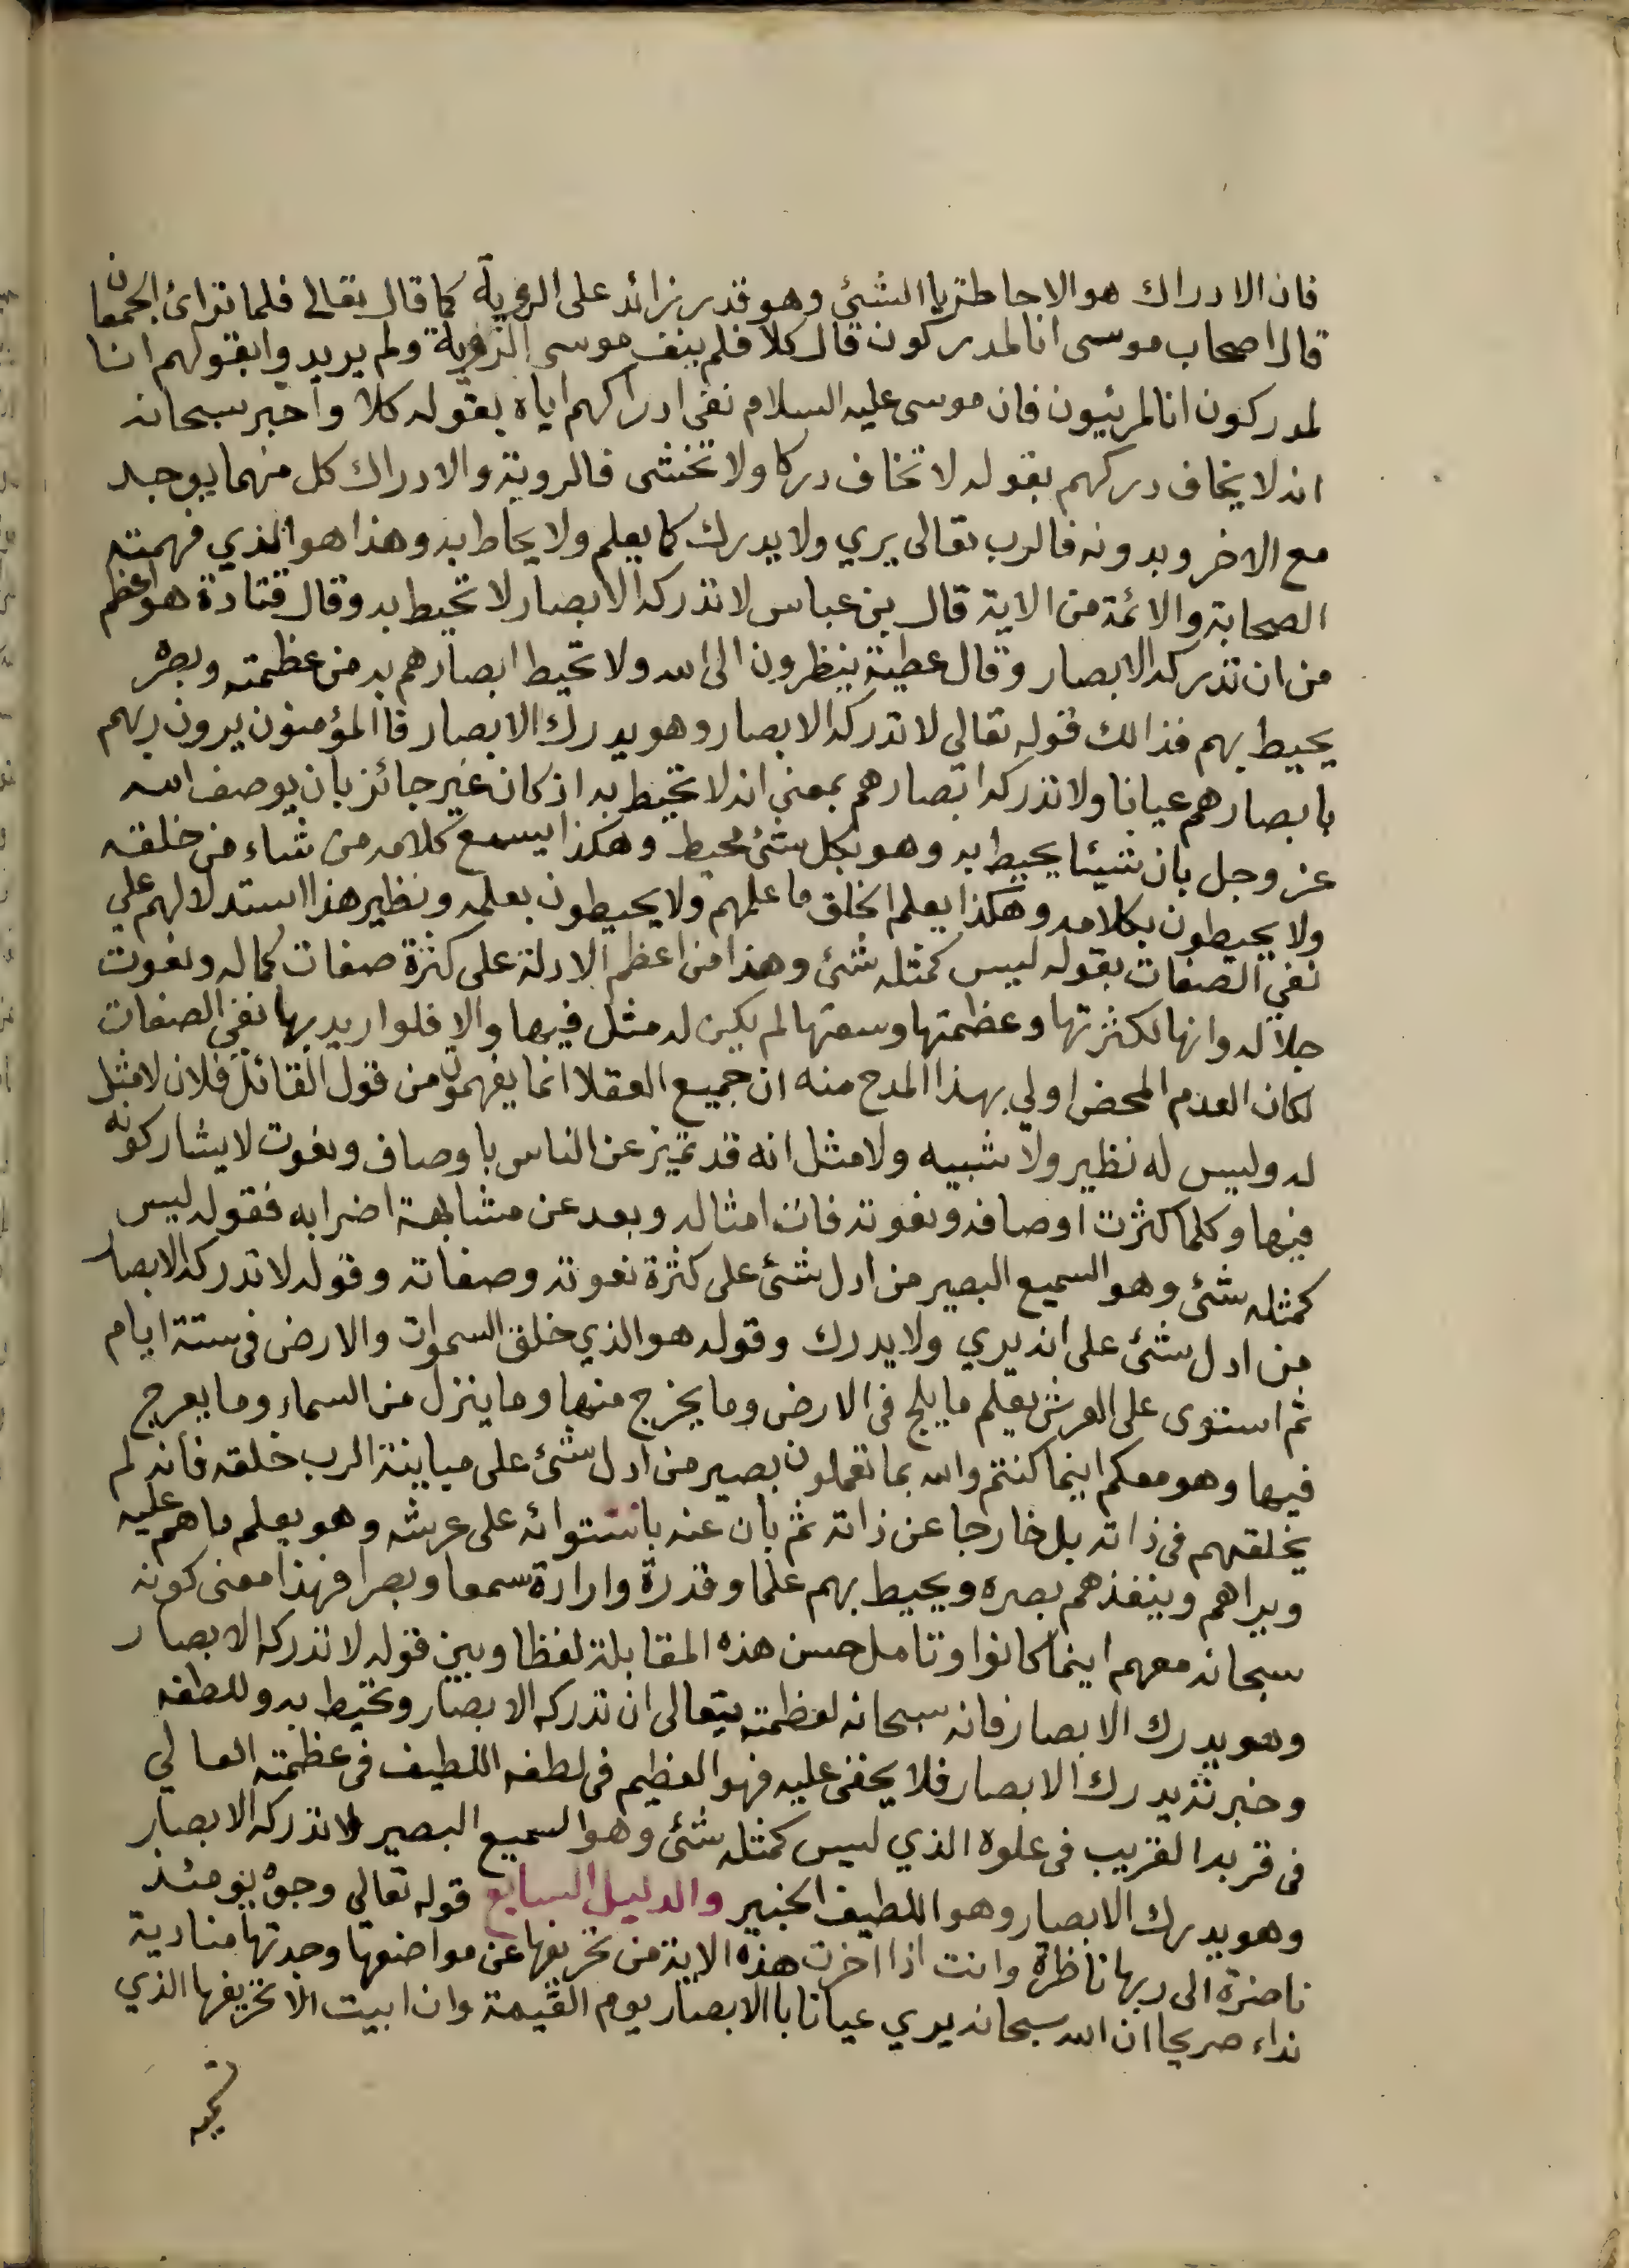 فان الادراك هو الاحاطة باالشئ وهو قدر زائد على الروية كما قال تعالى فلما تراى الجمعان
قال اصحاب موسى انا لمدركون قال كلا فلم ينف موسى الروية ولم يريدوا بقولهم انا
لمدركون انا لمرئيون فان موسى عليه السلام نفى ادراكهم اياه بقوله كلا واخبر سبحانه
انه لا يخاف دركهم بقوله لا تخاف دركا ولا تخشى فالروية والادراك كل منهما يوجد
مع الاخر وبدونه فالرب تعالى يري ولا يدرك كما يعلم ولا يحاط به وهذا هو الذي فهمته
الصحابة والائمة من الاية قال بن عباس لا تدركه الابصار لا تحيط به وقال قتادة هو اعظم
من ان تدركه الابصار وقال عطية ينظرون الى الله ولا تحيط ابصارهم به من عظمته وبصره
يحيط بهم فذالك قوله تعالي لا تدركه الابصار وهو يدرك الابصار فاالمؤمنون يرون ربهم
بابصارهم عيانا ولا تدركه ابصارهم بمعني انه لا تحيط به اذ كان غير جائز بان يوصف الله
عز وجل بان شيئا يحيط به وهو بكل شئ محيط وهكذا يسمع كلامه من شاء من خلقه
ولا يحيطون بكلامه وهكذا يعلم الخلق ما علمهم ولا يحيطون بعلمه ونظير هذا استدلالهم علي
نفي الصفات بقوله ليس كمثله شئ وهذا من اعظم الادلة على كثرة صفات كماله ونعوت
جلاله وانها لكثرتها وعظمتها وسعتها لم يكن له مثل فيها والا فلو اريد بها نفي الصفات
لكان العدم المحض اولي بهذا المدح منه ان جميع العقلا انما يفهمون من قول القائل فلان لا مثل
له وليس له نظير ولا شبيه ولا مثل انه قد تميز عن الناس باوصاف ونعوت لا يشاركونه
فيها وكلما كثرت اوصافه ونعوته فات امثاله وبعد عن مشابهة اضرابه فقوله ليس
كمثله شئ وهو السميع البصير من ادل شئ على كثرة نعوته وصفاته وقوله لا تدركه الابصار
من ادل شئ على انه يري ولا يدرك وقوله هو الذي خلق السموات والارض في ستة ايام
ثم استوى على العرش يعلم ما يلج في الارض وما يخرج منها وما ينزل من السماء وما يعرج
فيها وهو معكم اينما كنتم والله بما تعملون بصير من ادل شئ على مباينة الرب خلقه فانه لم
يخلقهم في ذاته بل خارجا عن ذاته ثم بان عنه باستوائه على عرشه وهو يعلم ما هم عليه
ويراهم وينفذهم بصره ويحيط بهم علما وقدرة وارادة سمعا وبصرا فهذا معنى كونه
سبحانه معهم اينما كانوا وتامل حسن هذه المقابلة لفظا وبين قوله لا تدركه الابصار
وهو يدرك الابصار فانه سبحانه لعظمته يتعالى ان تدركه الابصار وتحيط به وللطفه
وخبرته يدرك الابصار فلا يخفى عليه فهو العظيم في لطفه اللطيف في عظمته العالي
في قربه القريب في علوه الذي ليس كمثله شئ وهو السميع البصير لا تدركه الابصار
وهو يدرك الابصار وهو اللطيف الخبير والدليل السابع قوله تعالي وجوه يومئذ
ناضرة الى ربها ناظرة وانت اذا اخرت هذه الاية من تحريفها عن مواضعها وجدتها منادية
نداء صريحا ان الله سبحانه يري عيانا باالابصار يوم القيمة وان ابيت الا تحريفها الذي